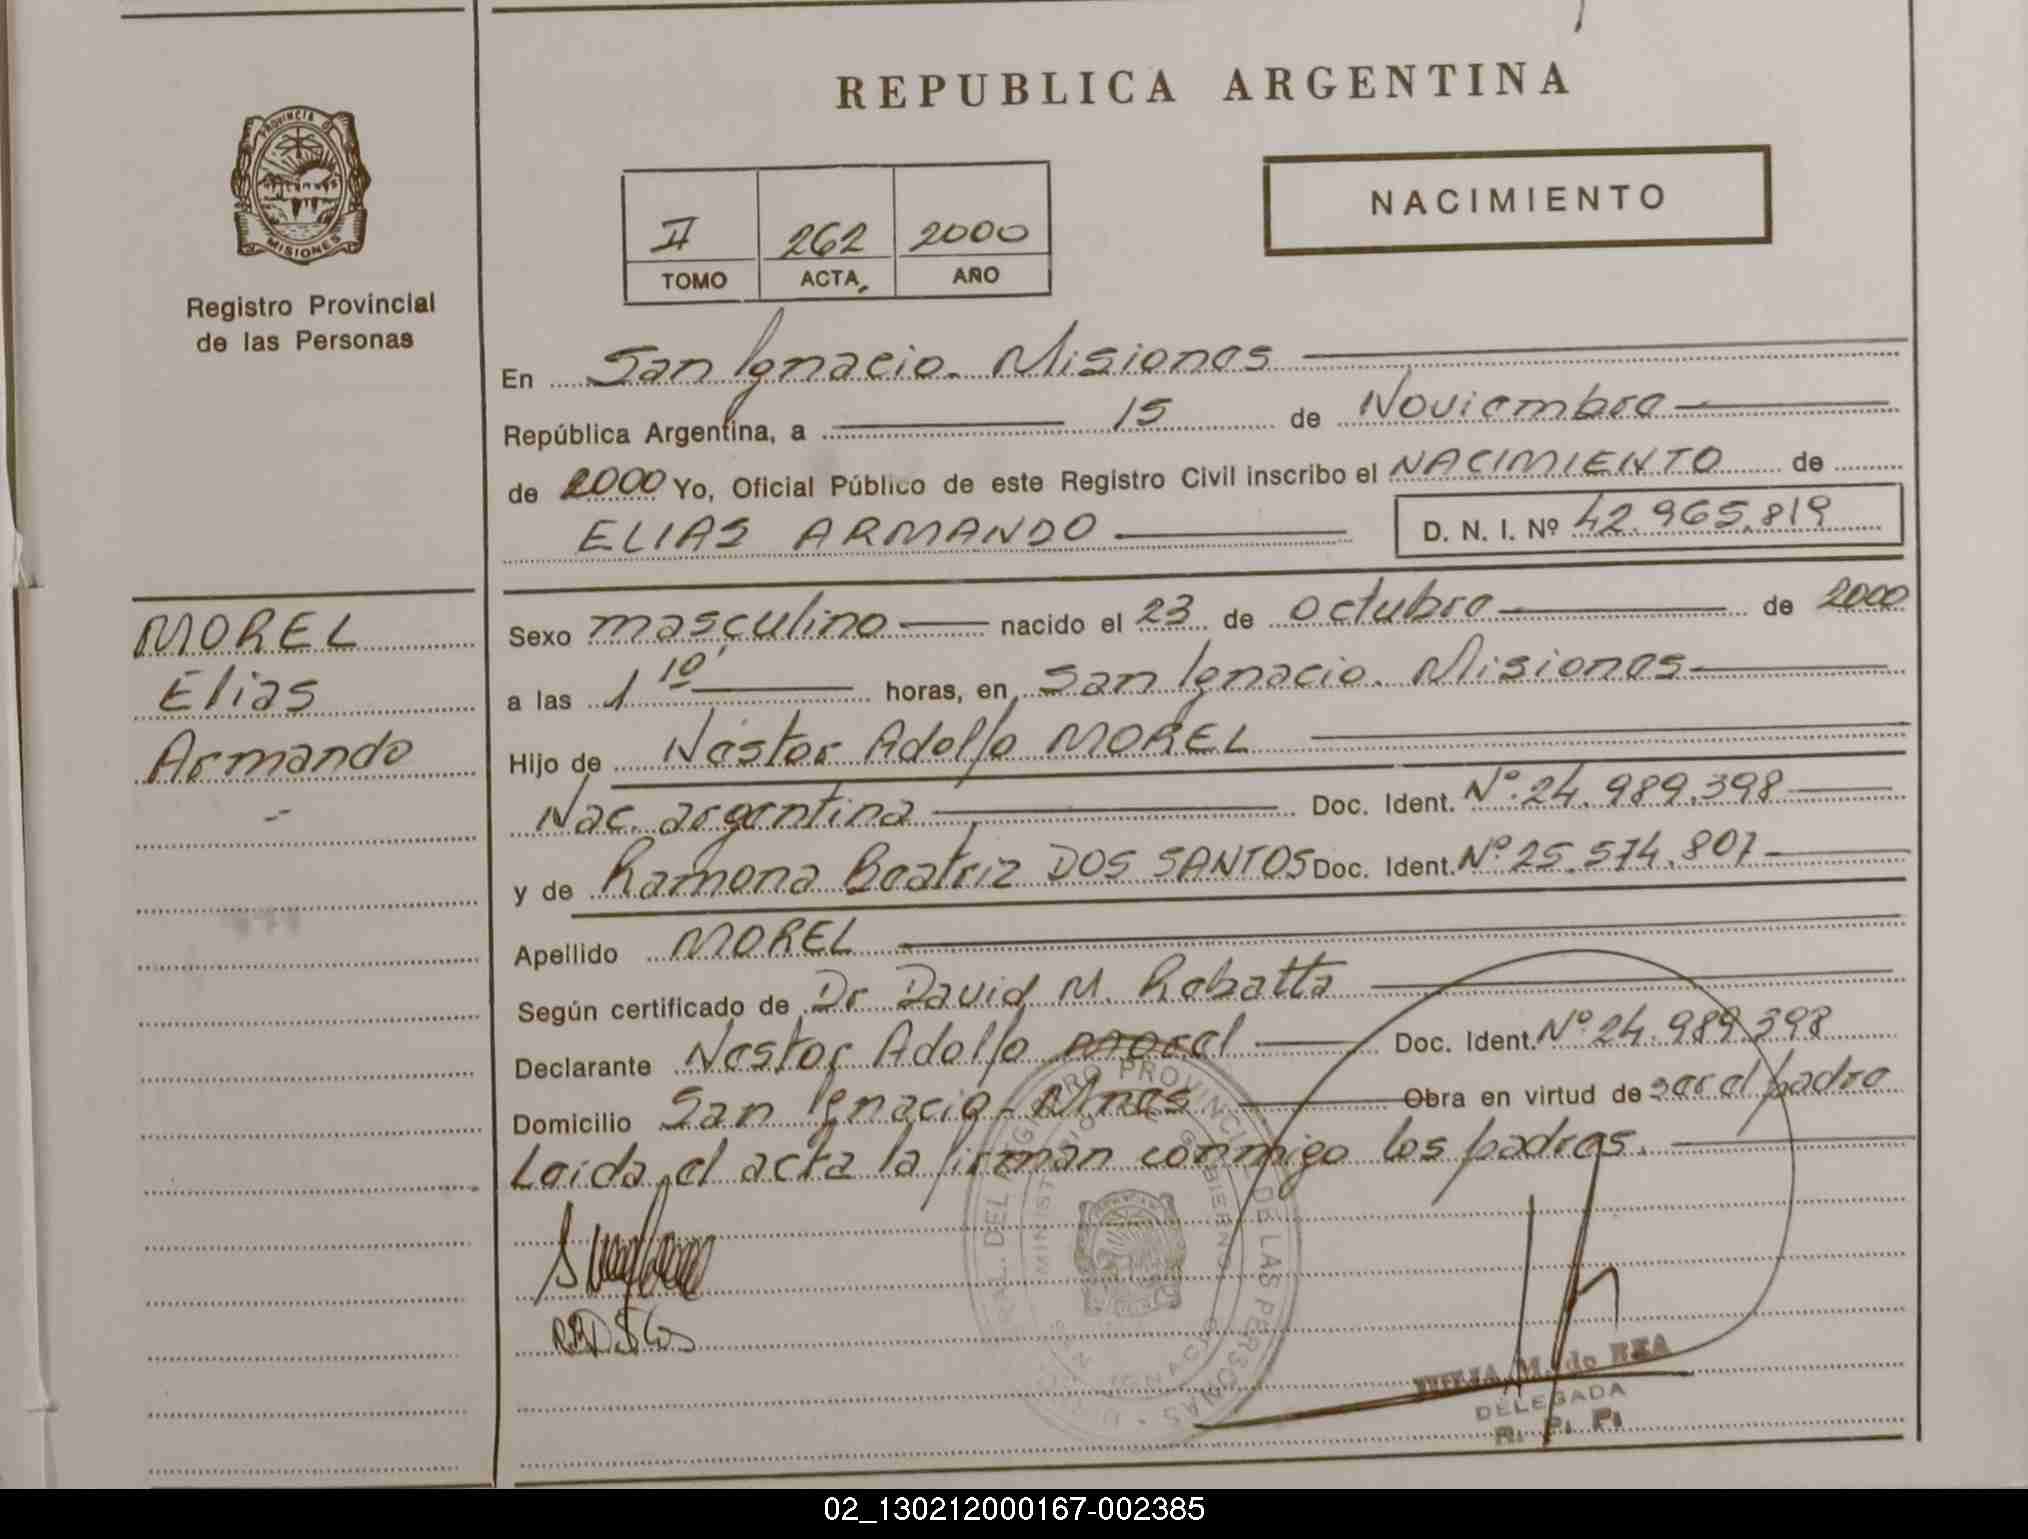 REPUBLICA ARGENTINA
PROVINCIA DE
MISIONES
Registro Provincial
de las Personas
NACIMIENTO
II 262 2000
TOMO ACTA AÑO
En San Ignacio. Misiones
República Argentina, a 15 de Noviembre
de 2000 Yo, Oficial Público de este Registro Civil inscribo el NACIMIENTO de
ELIAS ARMANDO D. N. I. Nº 42.965.819
MOREL
Elias
Armando
Sexo masculino nacido el 23 de octubre de 2000
a las 1 10' horas, en San Ignacio. Misiones
Hijo de Nestor Adolfo MOREL
Nac. argentina Doc. Ident. Nº. 24.989.398
y de Ramona Beatriz DOS SANTOS Doc. Ident. Nº. 25.574.807
Apellido MOREL
Según certificado de Dr David M. Rebatta
Declarante Nestor Adolfo Morel Doc. Ident. Nº. 24.989.398
Domicilio San Ignacio. Mnes Obra en virtud de ser el padre
Leida el acta la firman conmigo los padres.
DEL REGISTRO PROVINCIAL DE LAS PERSONAS
MINISTERIO DE GOBIERNO
IGNACIO
M. de REA
DELEGADA
R. P. P.
02_130212000167-002385